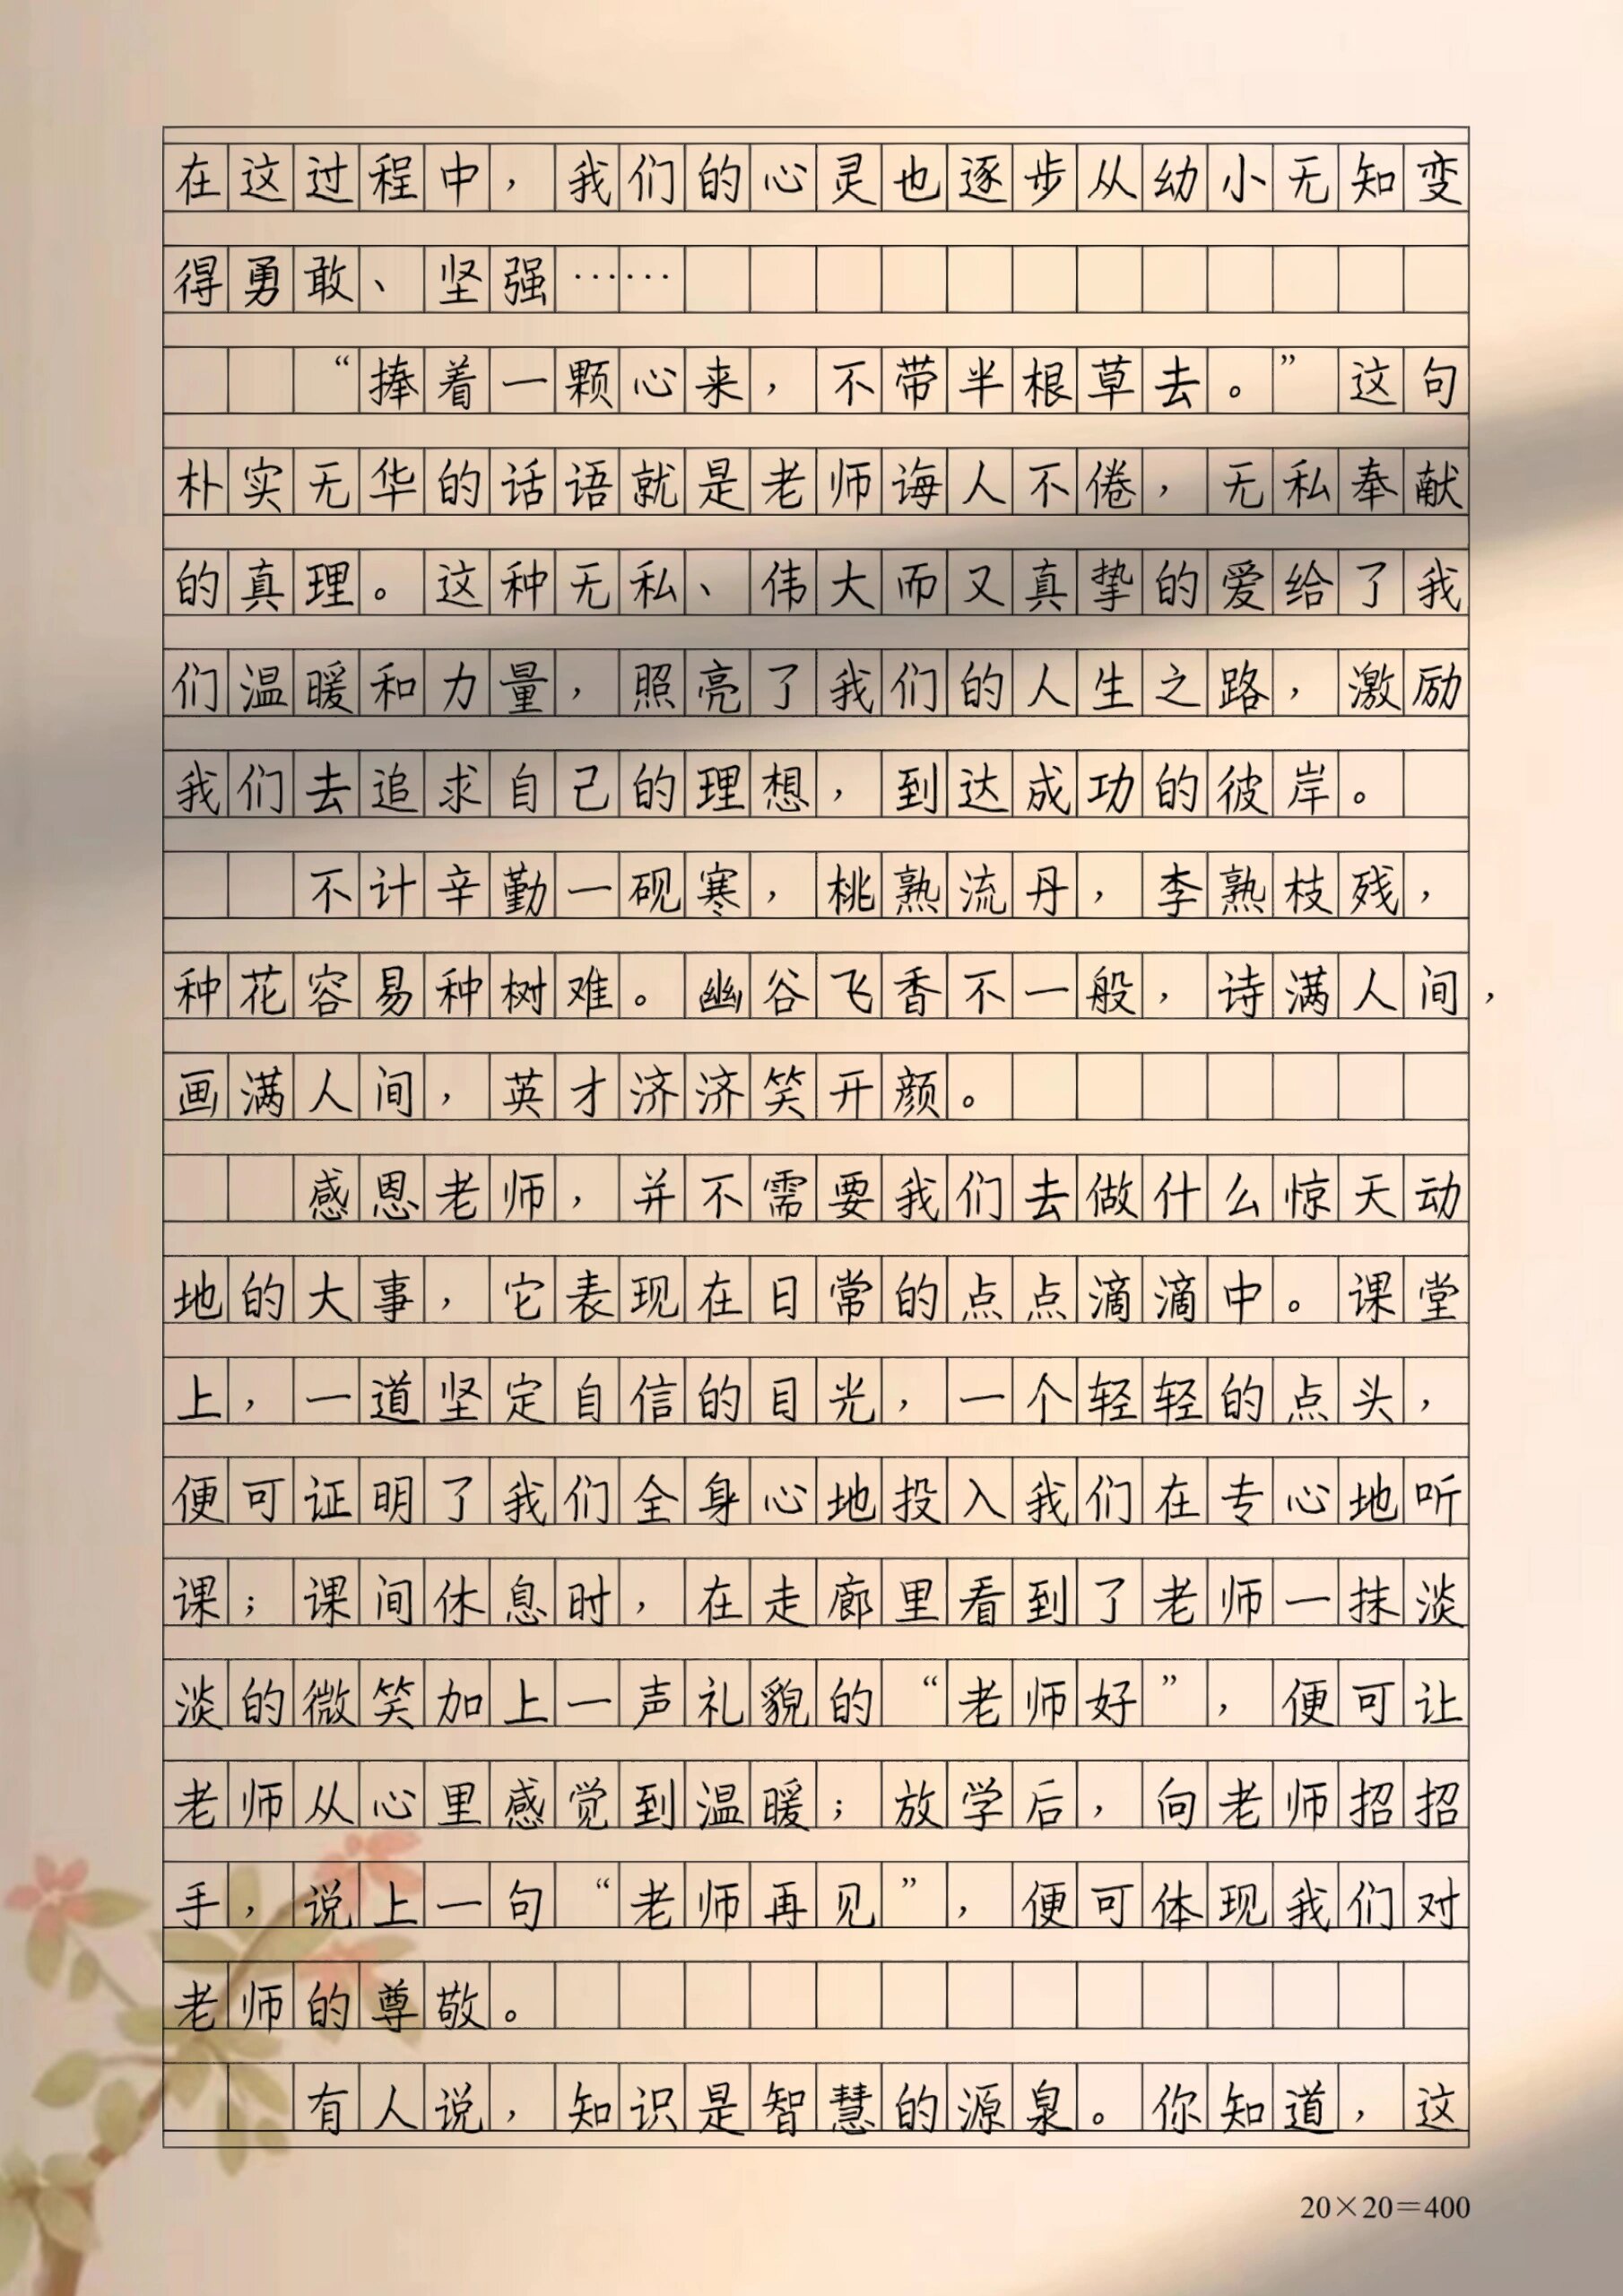 在这过程中，我们的心灵也逐步从幼小无知变
得勇敢、坚强……
“捧着一颗心来，不带半根草去。”这句
朴实无华的话语就是老师诲人不倦，无私奉献
的真理。这种无私、伟大而又真挚的爱给了我
们温暖和力量，照亮了我们的人生之路，激励
我们去追求自己的理想，到达成功的彼岸。
不计辛勤一砚寒，桃熟流丹，李熟枝残，
种花容易种树难。幽谷飞香不一般，诗满人间，
画满人间，英才济济笑开颜。
感恩老师，并不需要我们去做什么惊天动
地的大事，它表现在日常的点点滴滴中。课堂
上，一道坚定自信的目光，一个轻轻的点头，
便可证明了我们全身心地投入我们在专心地听
课；课间休息时，在走廊里看到了老师一抹淡
淡的微笑加上一声礼貌的“老师好”，便可让
老师从心里感觉到温暖；放学后，向老师招招
手，说上一句“老师再见”，便可体现我们对
老师的尊敬。
有人说，知识是智慧的源泉。你知道，这
20×20=400